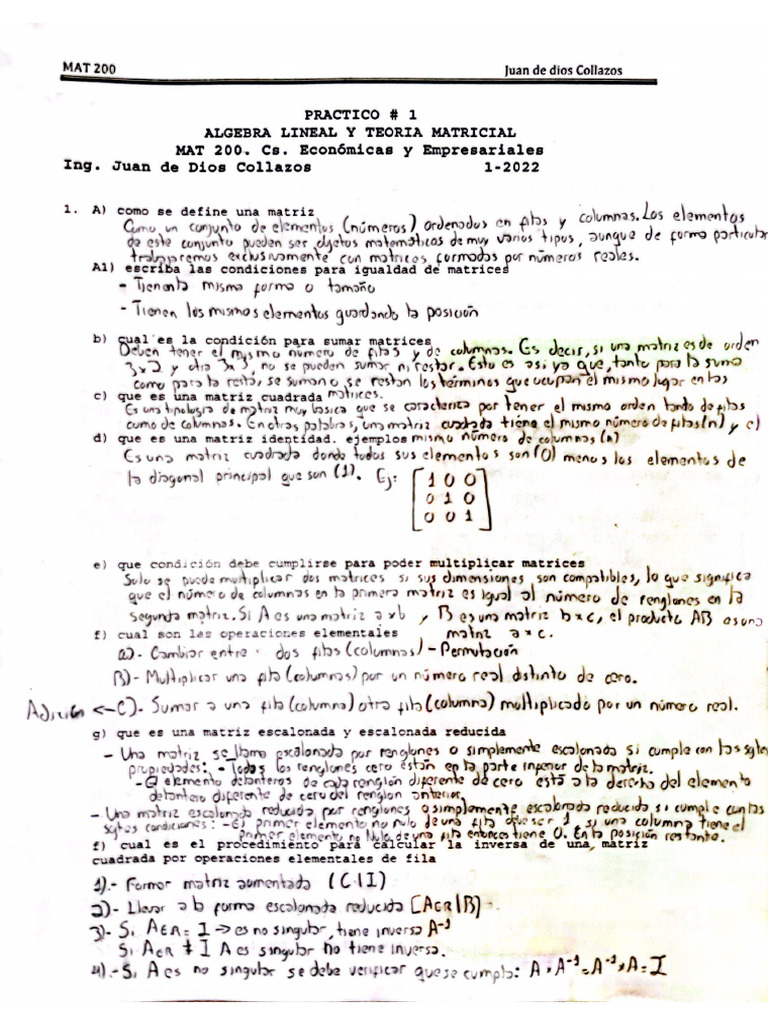 MAT 200 Juan de dios Collazos
PRACTICO # 1
ALGEBRA LINEAL Y TEORIA MATRICIAL
MAT 200. Cs. Económicas y Empresariales
Ing. Juan de Dios Collazos 1-2022
1. A) como se define una matriz
Como un conjunto de elementos (números) ordenados en filas y columnas. Los elementos
de este conjunto pueden ser objetos matemáticos de muy varios tipos, aunque de forma particular
trabajaremos exclusivamente con matrices formadas por números reales.
A1) escriba las condiciones para igualdad de matrices
- Tienen la misma forma o tamaño
- Tienen los mismos elementos guardando la posición
b) cual es la condición para sumar matrices
Deben tener el mismo número de filas y de columnas. Es decir, si una matriz es de orden
3x2 y otra 3x3, no se pueden sumar ni restar. Esto es así ya que, tanto para la suma
como para la resta, se suman o se restan los términos que ocupan el mismo lugar en las
matrices.
c) que es una matriz cuadrada
Es una tipología de matriz muy básica que se caracteriza por tener el mismo orden tanto de filas
como de columnas. En otras palabras, una matriz cuadrada tiene el mismo número de filas (n) y el
mismo número de columnas (n)
d) que es una matriz identidad. ejemplos
Es una matriz cuadrada donde todos sus elementos son (0) menos los elementos de
la diagonal principal que son (1). Ej:
1 0 0
0 1 0
0 0 1
e) que condición debe cumplirse para poder multiplicar matrices
Solo se puede multiplicar dos matrices si sus dimensiones son compatibles, lo que significa
que el número de columnas en la primera matriz es igual al número de renglones en la
segunda matriz. Si A es una matriz a x b y B es una matriz b x c, el producto AB es una
matriz a x c.
f) cual son las operaciones elementales
a)- Cambiar entre dos filas (columnas) - Permutación
B)- Multiplicar una fila (columna) por un número real distinto de cero.
Adición <- C)- Sumar a una fila (columna) otra fila (columna) multiplicado por un número real.
g) que es una matriz escalonada y escalonada reducida
- Una matriz se llama escalonada por renglones o simplemente escalonada si cumple con las sgtes
propiedades: - Todos los renglones cero están en la parte inferior de la matriz.
- El elemento delanteros de cada renglón diferente de cero está a la derecha del elemento
delantero diferente de cero del renglon anterior.
- Una matriz escalonada reducida por renglones o simplemente escalonada reducida si cumple con las
sgtes condiciones: - El primer elemento no nulo de una fila debe ser 1 si una columna tiene el
primer elemento no Nulo de una fila entonces tiene 0. En la posición restante.
f) cual es el procedimiento para calcular la inversa de una matriz
cuadrada por operaciones elementales de fila
1).- Formar matriz aumentada (C|I)
2)- Llevar a la forma escalonada reducida [AER|B]
3)- Si AER = I → es no singular, tiene inversa A⁻¹
Si AER ≠ I A es singular no tiene inversa.
4).- Si A es no singular se debe verificar que se cumpla: A x A⁻¹ = A⁻¹ x A = I